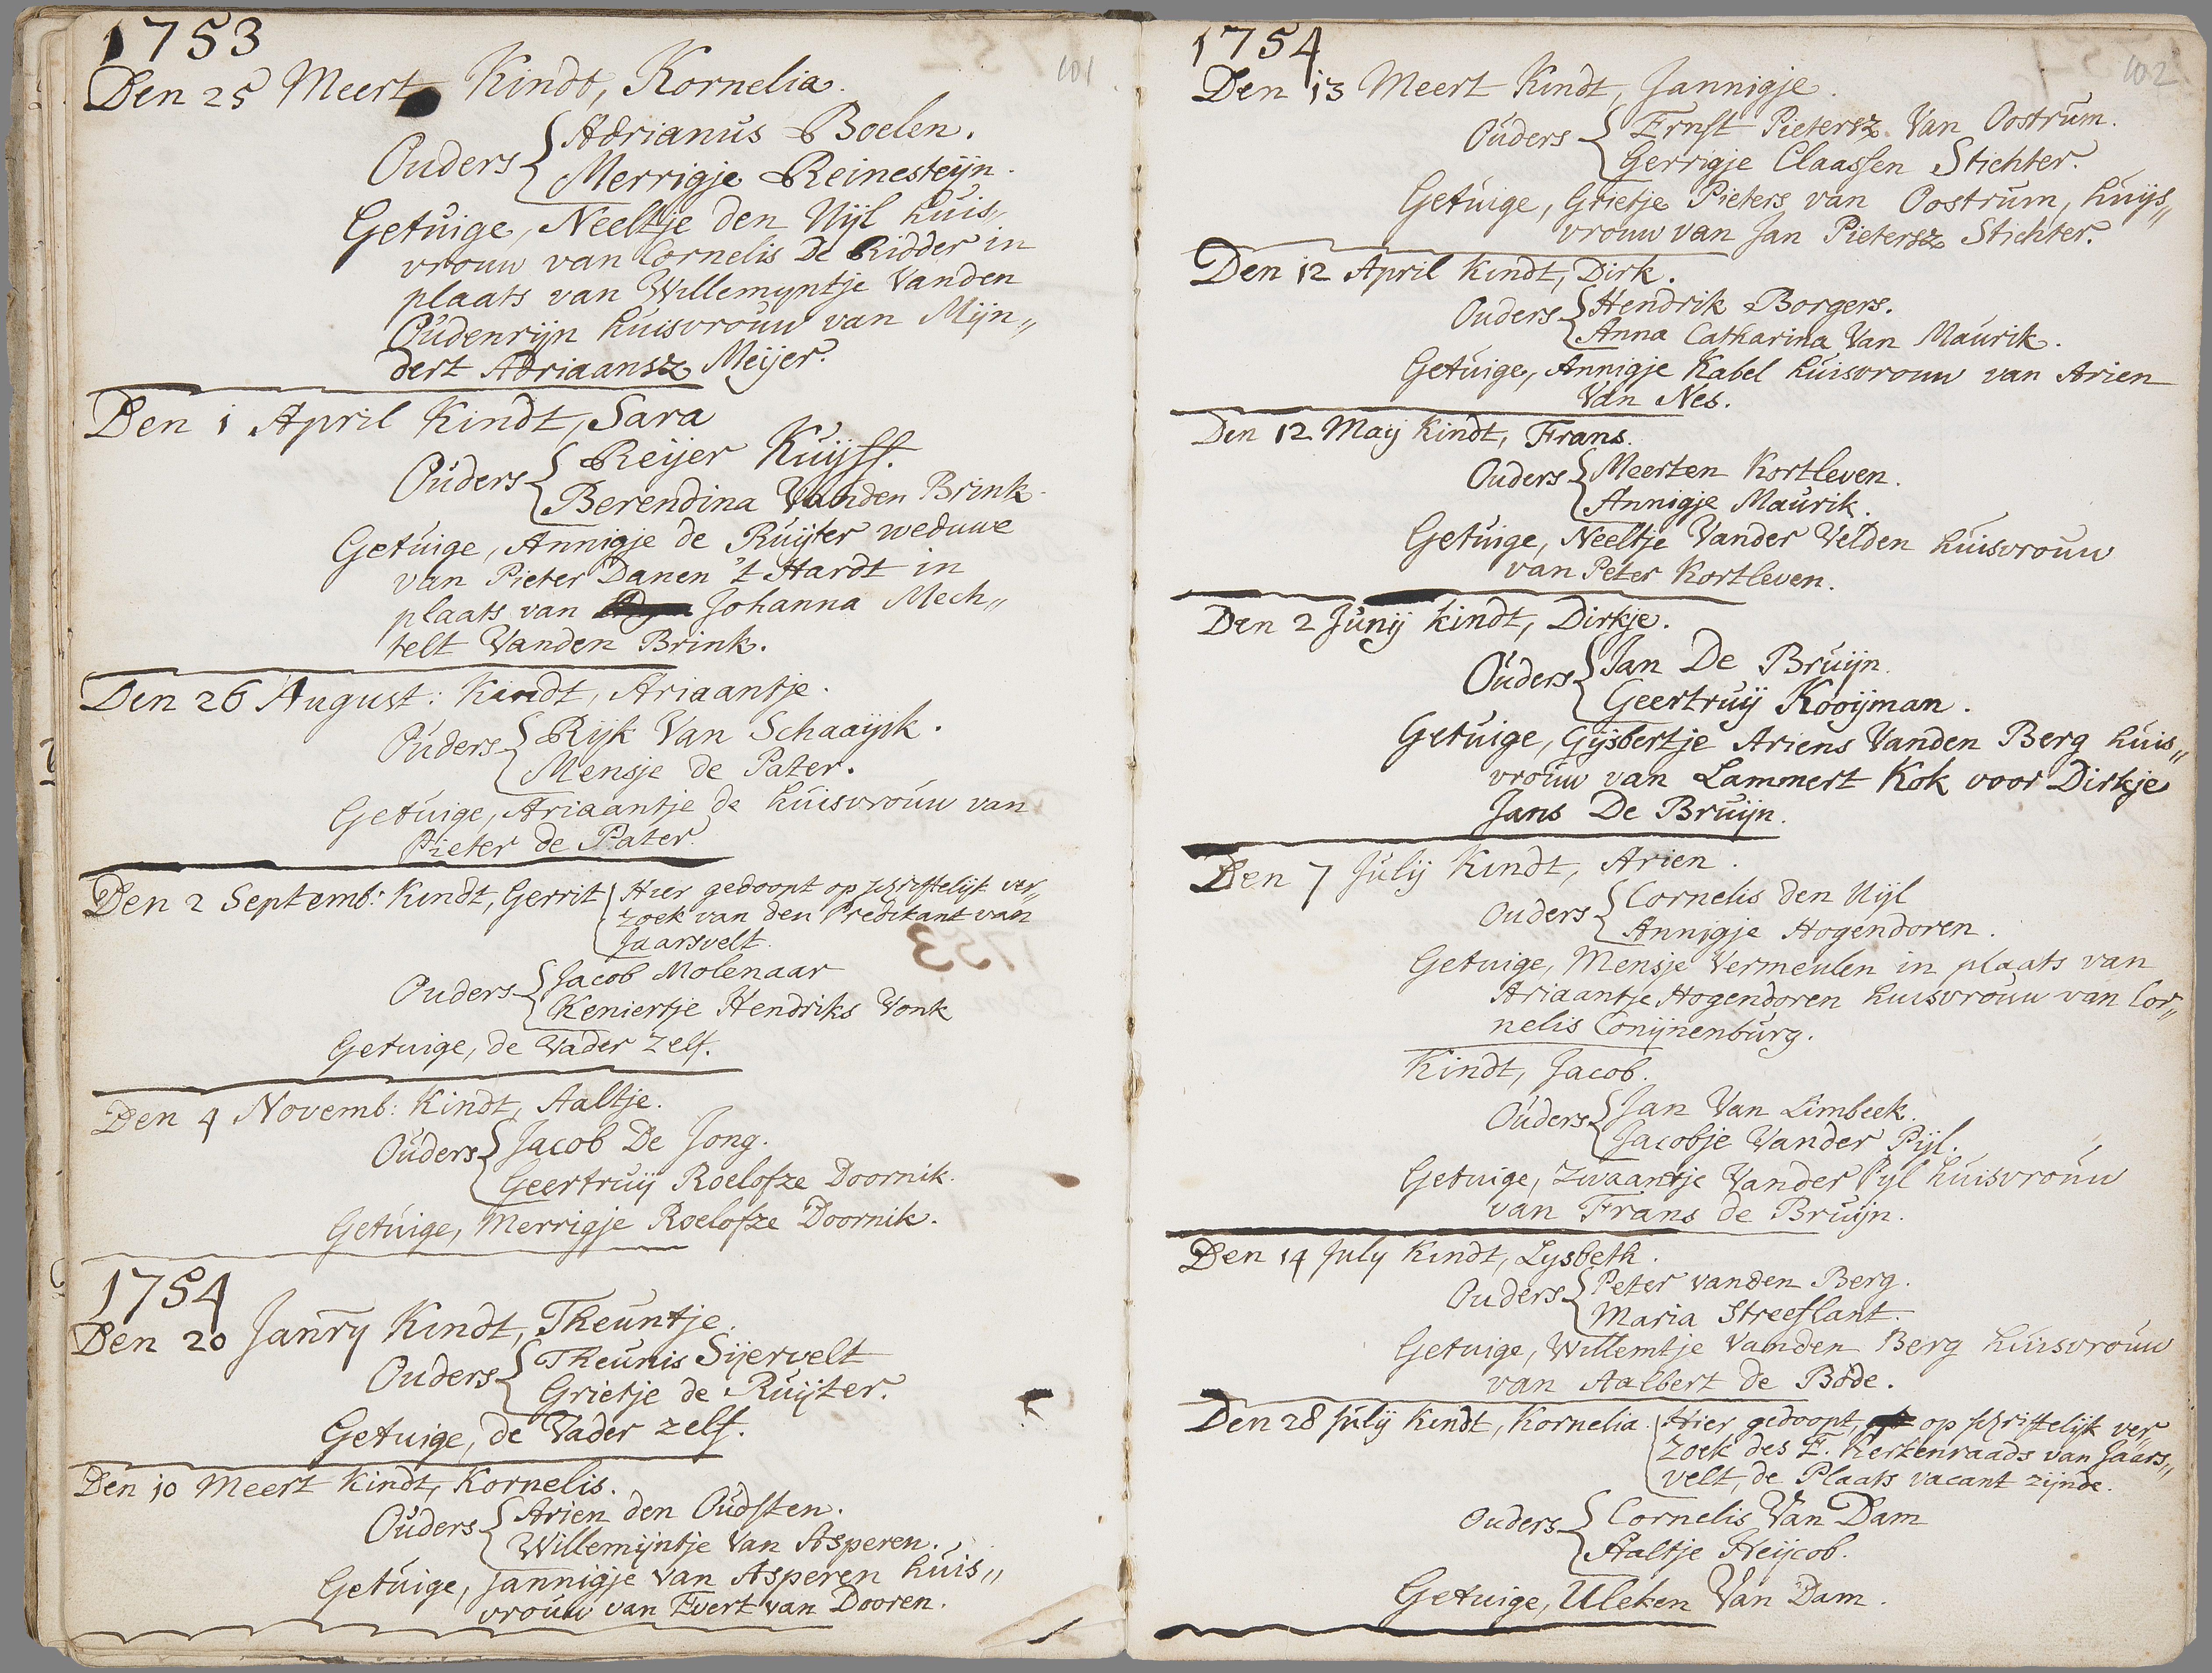 1753
101
Den 25 Meert Kindt, Kornelia.
Ouders { Adrianus Boelen.
Merrigje Reinesteijn.
Getuige, Neeltje den Uijl huis„
vrouw van Cornelis De Ridder in
plaats van Willemyntje Vanden
Oudenrijn huisvrouw van Mijn„
dert Adriaansz Meijer.
Den 1 April Kindt, Sara
Ouders { Reijer Kuijff.
Berendina Vanden Brink.
Getuige, Annigje de Ruijter weduwe
van Pieter Danen 't Hardt in
plaats van Johanna Mech„
telt Vanden Brink.
Den 26 August: Kindt, Ariaantje.
Ouders { Rijk Van Schaaijik.
Mensje de Pater.
Getuige, Ariaantje de huisvrouw van
Pieter de Pater.
Den 2 Septemb: Kindt, Gerrit { Hier gedoopt op schriftelijk ver„
zoek van den Predikant van
Jaarsvelt.
Ouders { Jacob Molenaar
Keniertje Hendriks Vonk
Getuige, de Vader zelf.
Den 4 Novemb: Kindt, Aaltje.
Ouders { Jacob De Jong.
Geertruij Roelofze Doornik.
Getuige, Merrigje Roelofze Doornik.
1754
Den 20 Janry Kindt, Theuntje.
Ouders { Theunis Sijervelt
Grietje de Ruijter.
Getuige, de Vader zelf.
Den 10 Meert Kindt, Kornelis.
Ouders { Arien den Oudsten.
Willemijntje Van Asperen.
Getuige, Jannigje Van Asperen huis„
vrouw van Evert van Dooren.
1754
102
Den 13 Meert Kindt, Jannigje.
Ouders { Ernst Pietersz. Van Oostrum.
Gerrigje Claassen Stichter.
Getuige, Grietje Pieters van Oostrum, huijs„
vrouw van Jan Pietersz Stichter.
Den 12 April Kindt, Dirk.
Ouders { Hendrik Borgers.
Anna Catharina Van Maurik.
Getuige, Annigje Kabel huisvrouw van Arien
Van Nes.
Den 12 Maij Kindt, Frans.
Ouders { Meerten Kortleven.
Annigje Maurik.
Getuige, Neeltje Vander Velden huisvrouw
van Peter Kortleven.
Den 2 Junij Kindt, Dirkje.
Ouders { Jan De Bruijn.
Geertruij Kooijman.
Getuige, Gijsbertje Ariens Vanden Berg huis„
vrouw van Lammert Kok voor Dirkje
Jans De Bruijn.
Den 7 Julij Kindt, Arien.
Ouders { Cornelis den Uijl
Annigje Hogendoren.
Getuige, Mensje Vermeulen in plaats van
Ariaantje Hogendoren huisvrouw van Cor„
nelis Conijnenburg.
Kindt, Jacob.
Ouders { Jan Van Limbeek.
Jacobje Vander Pijl.
Getuige, Zwaantje Vander Pijl huisvrouw
van Frans de Bruijn.
Den 14 July Kindt, Lysbeth.
Ouders { Peter vanden Berg.
Maria Streeflant.
Getuige, Willemtje Vanden Berg huisvrouw
van Aalbert de Bode.
Den 28 Julij Kindt, Kornelia. { Hier gedoopt, op schriftelijk ver„
zoek des E. Kerkenraads van Jaars„
velt, de Plaats vacant zijnde.
Ouders { Cornelis Van Dam
Aaltje Heijcob.
Getuige, Uleken Van Dam.